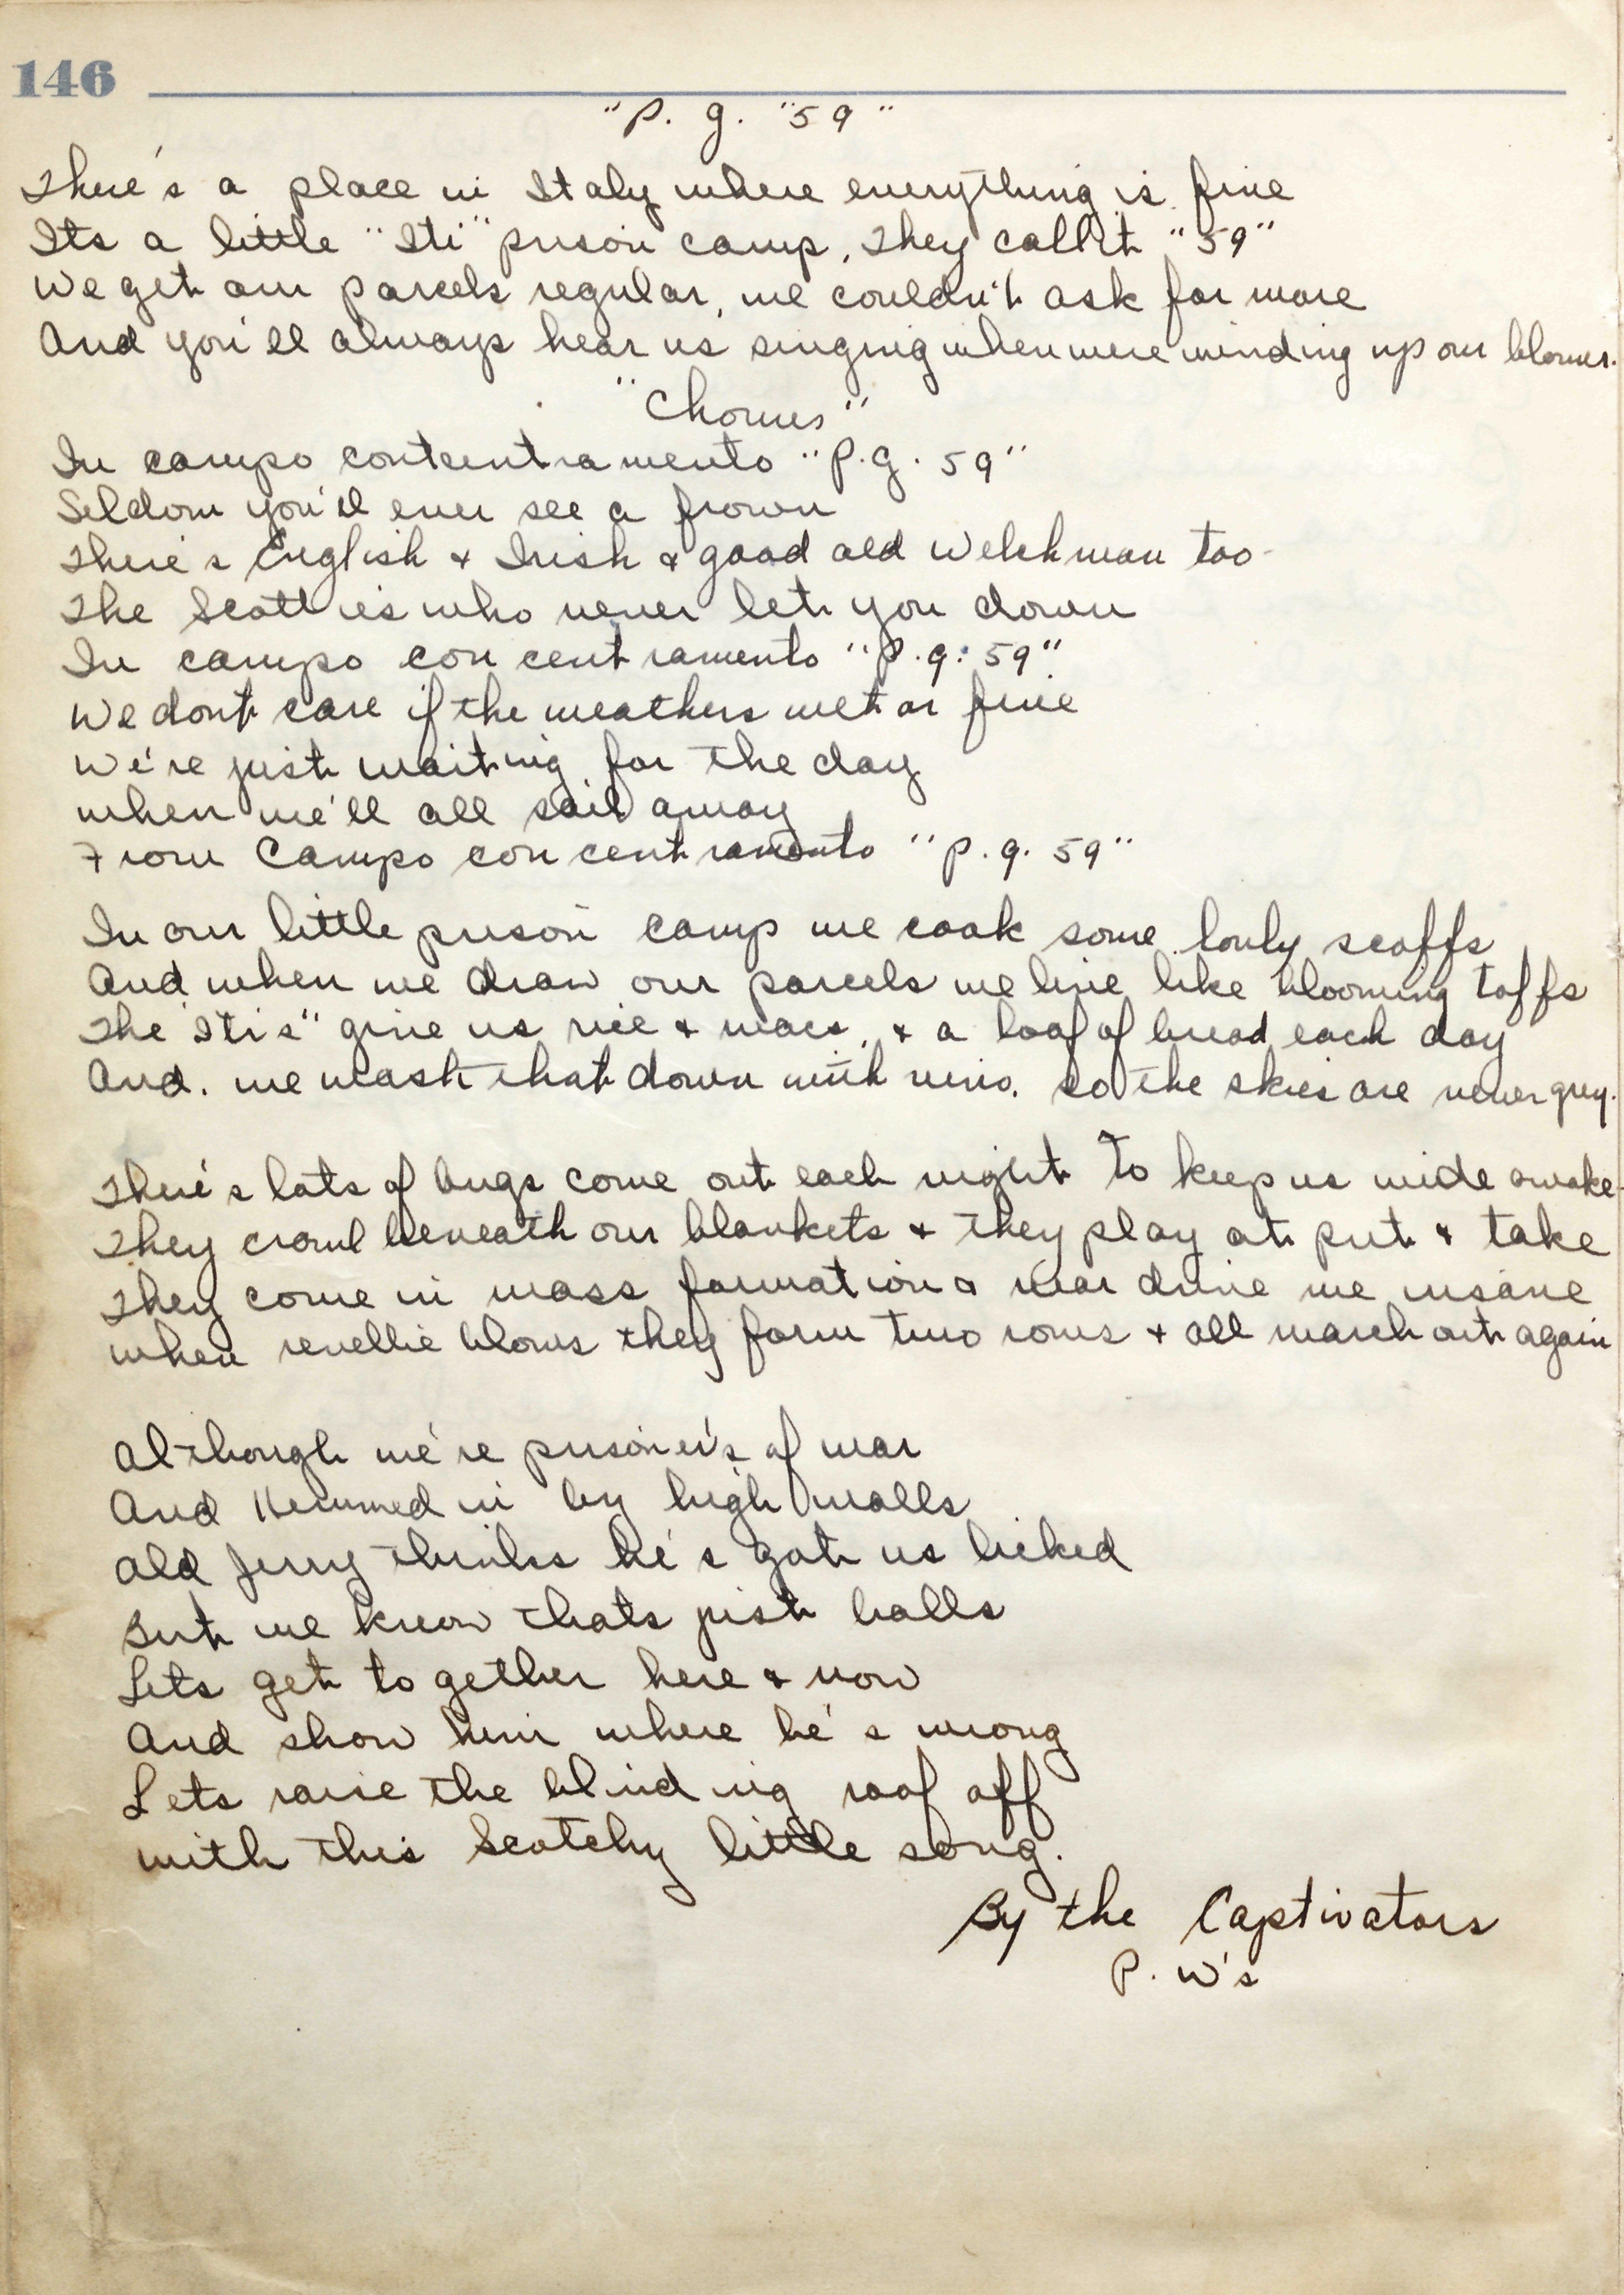 146
"P. g. "59"
There's a place in Italy where everything is fine
Its a little "Iti" prison camp, They call it "59"
We get our parcels regular, we couldn't ask for more
And you'll always hear us singing when were winding up our blower.
"Chorus"
In campo contcentramento "P.g. 59"
Seldom you'll ever see a frown
There's English & Irish & good old Welchman too
The Scotties who never let you down
In campo con cent ramento "P.g. 59"
We dont care if the weathers wet or fine
We're just waiting for the day
when we'll all sail away
From Campo con cent ramento "P.g. 59"
In our little prison camp we cook some lovly scoffs
And when we draw our parcels we live like blooming toffs
The "Itis" give us rice & macs, & a loaf of bread each day
And. we wash that down with vino. so the skies are never grey.
There's lots of bugs come out each night To keep us wide awake
They crawl beneath our blankets & they play at put & take
They come in mass formation & near drive me insane
when revellie blows they form two rows & all march out again
Although we're prisoner's of war
And Hemmed in by high walls
Old Jerry thinks he's got us licked
But we know thats just balls
Lets get to gether here & now
And show him where he's wrong
Lets raise the blinding roof off
with this Scotchy little song.
By the Captivators
P. W's